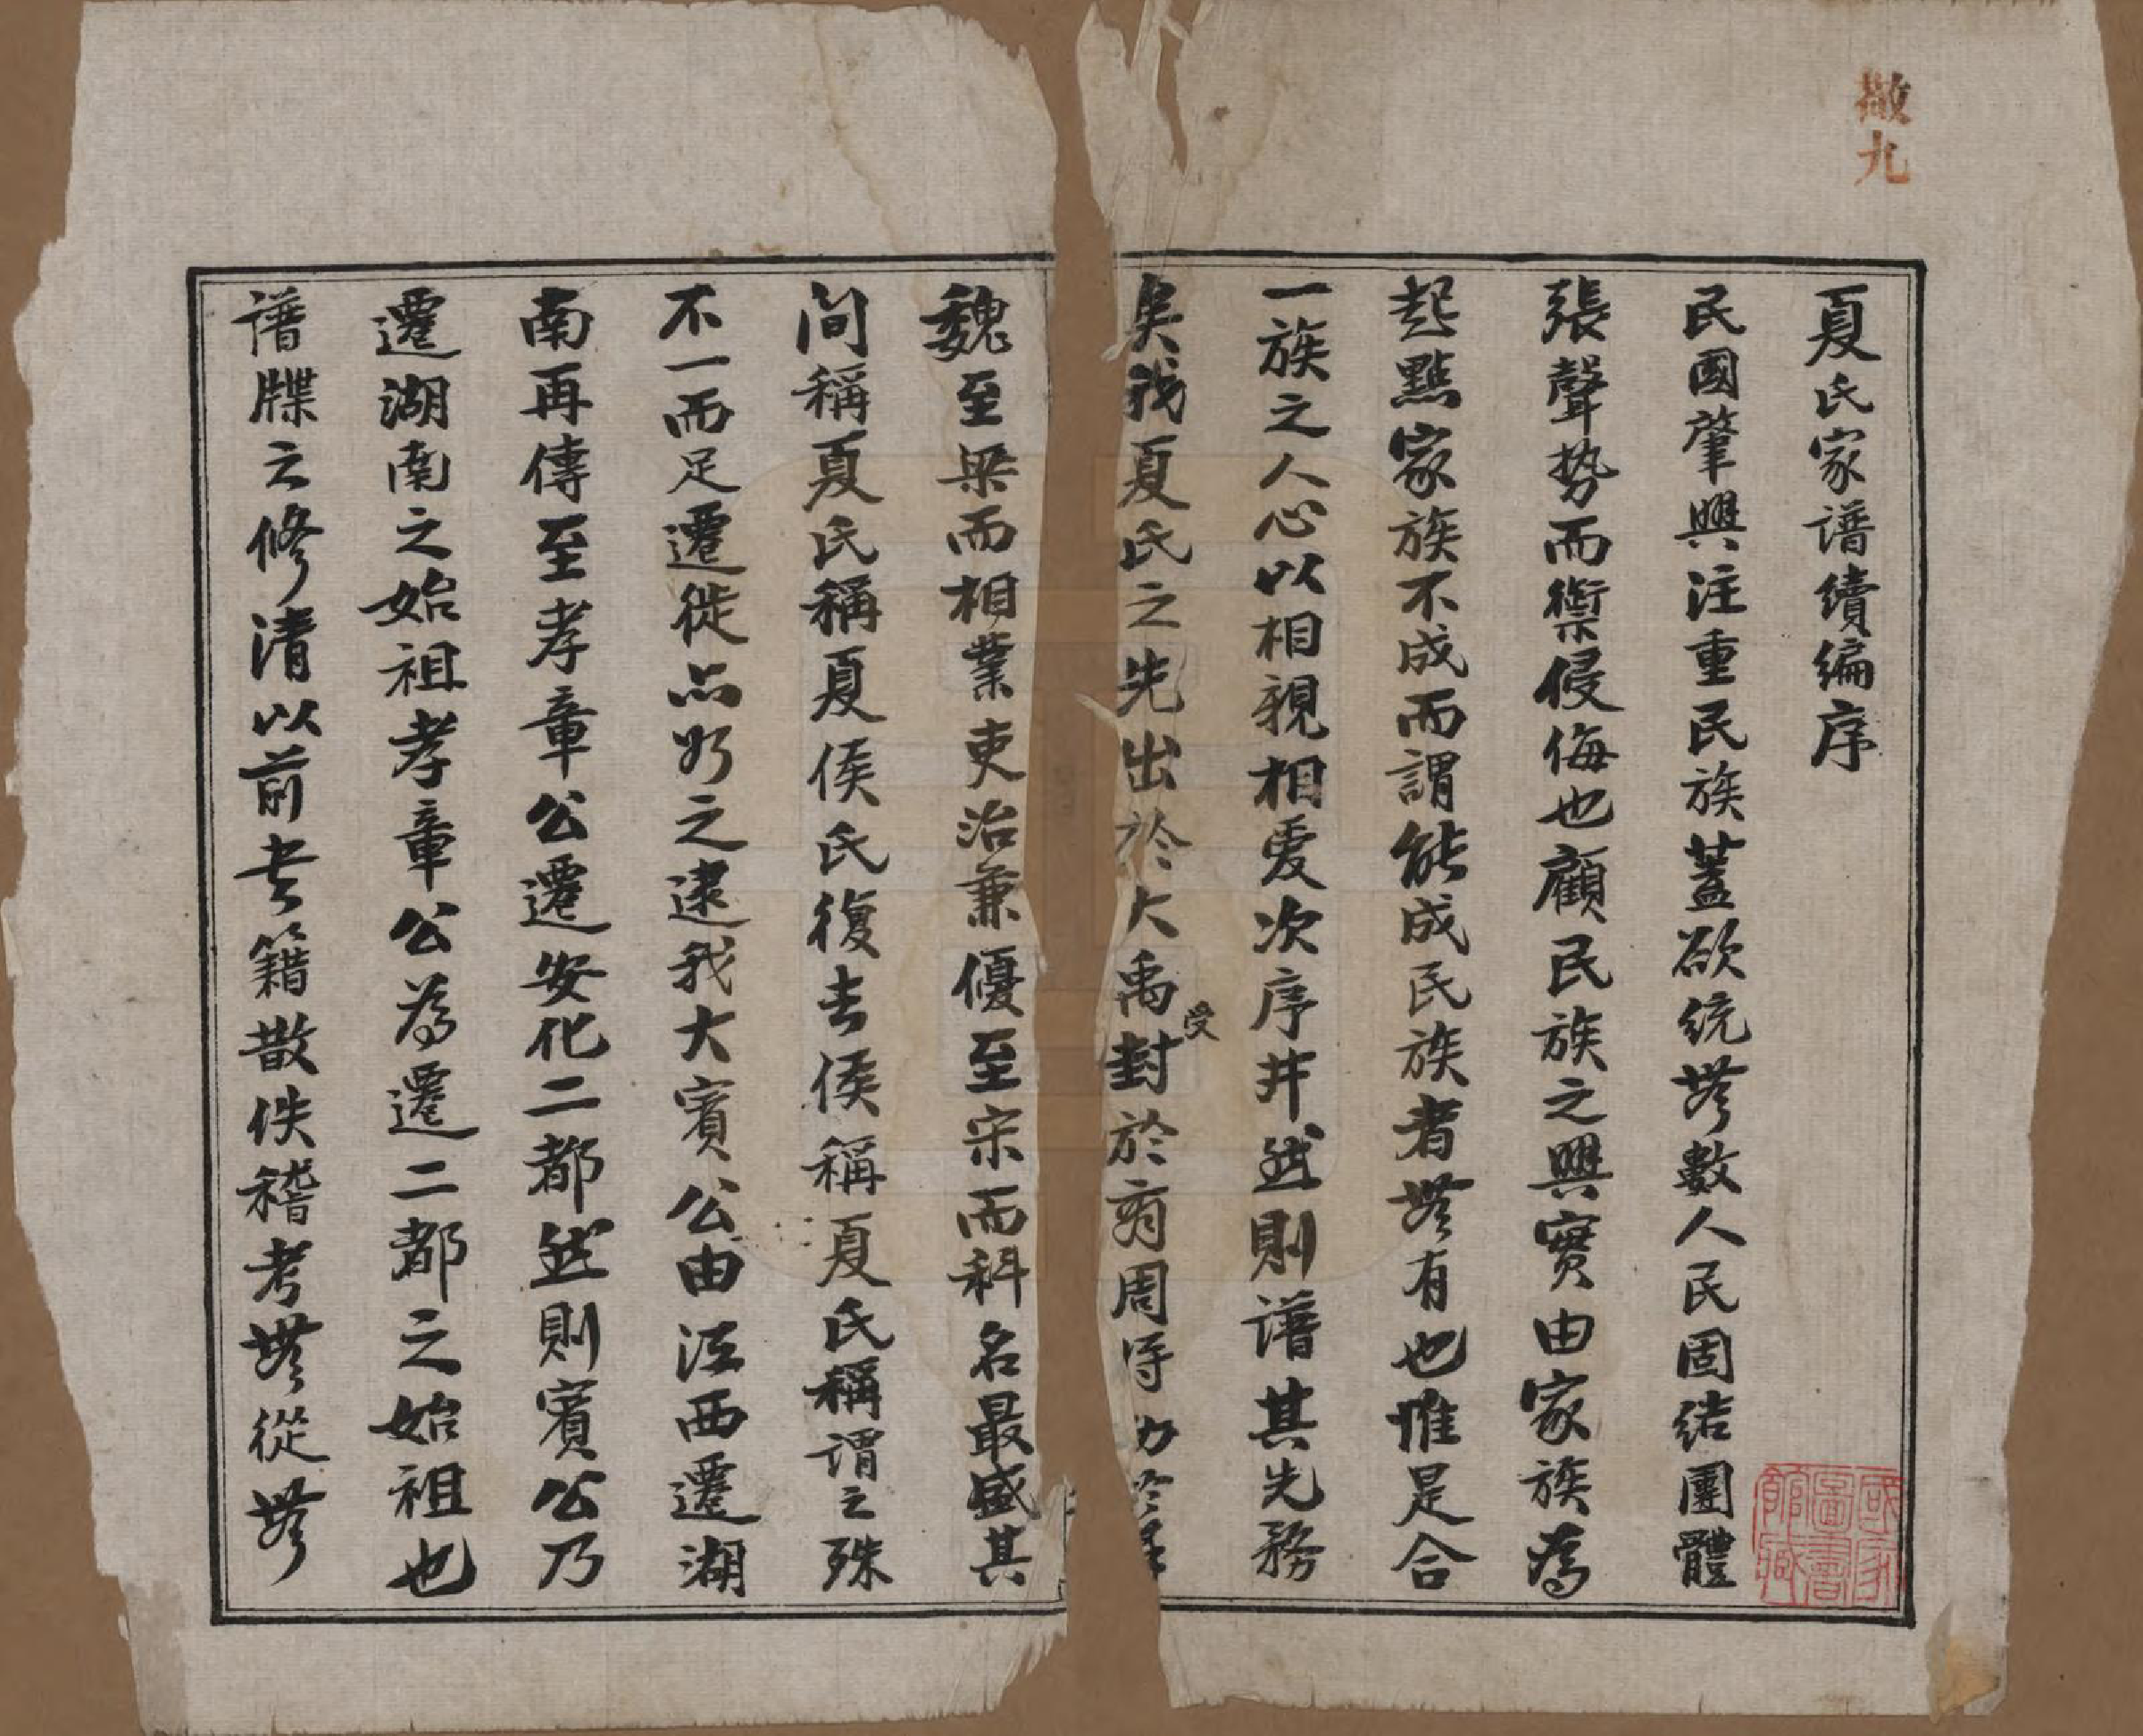 撤九
夏氏家譜續編序
民國肇興注重民族蓋欲統無數人民固結團體
張聲勢而禦侵侮也顧民族之興實由家族為
起點家族不成而謂能成民族者無有也惟是合
一族之人心以相親相愛次序井然則譜其先務
矣我夏氏之先出於大禹受封於商周
魏至梁而相業吏治兼優至宋而科名最盛其
间稱夏氏稱夏侯氏復去侯稱夏氏稱謂之殊
不一而足遷徙亦如之逮我大賓公由江西遷湖
南再傳至孝章公遷安化二都然則賓公乃
遷湖南之始祖孝章公為遷二都之始祖也
譜牒云修清以前老籍散佚稽考無從無
國家圖書館藏